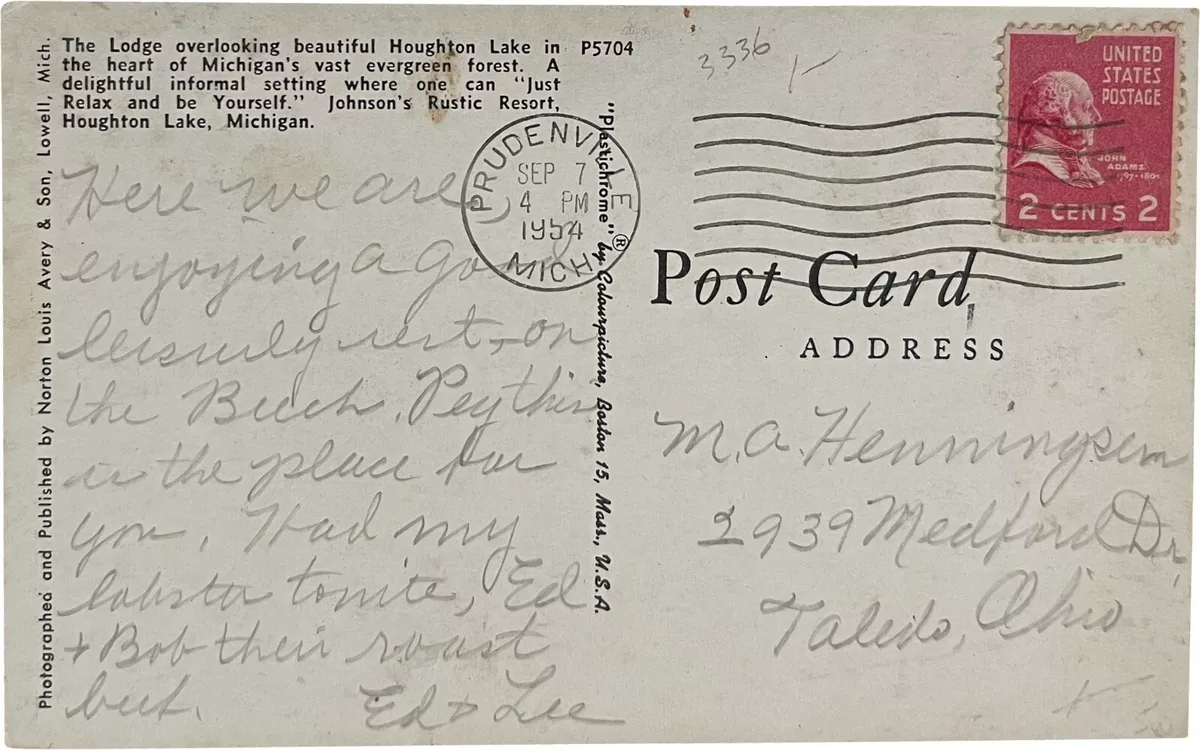 The Lodge overlooking beautiful Houghton Lake in
the heart of Michigan's vast evergreen forest. A
delightful informal setting where one can "Just
Relax and be Yourself." Johnson's Rustic Resort,
Houghton Lake, Michigan.
P5704
3336
PRUDENVILLE
SEP 7
4 PM
1954
MICH.
UNITED
STATES
POSTAGE
JOHN
ADAMS
1797-1801
2 CENTS 2
Photographed and Published by Norton Louis Avery & Son, Lowell, Mich.
"Plastichrome"® by Colourpicture, Boston 15, Mass., U.S.A.
Here we are
enjoying a good
leisurely rest, on
the Beach. Peg this
is the place for
you. Had my
lobster tonite, Ed
+ Bob their roast
beef.
Ed + Lee
Post Card
ADDRESS
M. A. Henningsen
2939 Medford Dr.
Toledo, Ohio